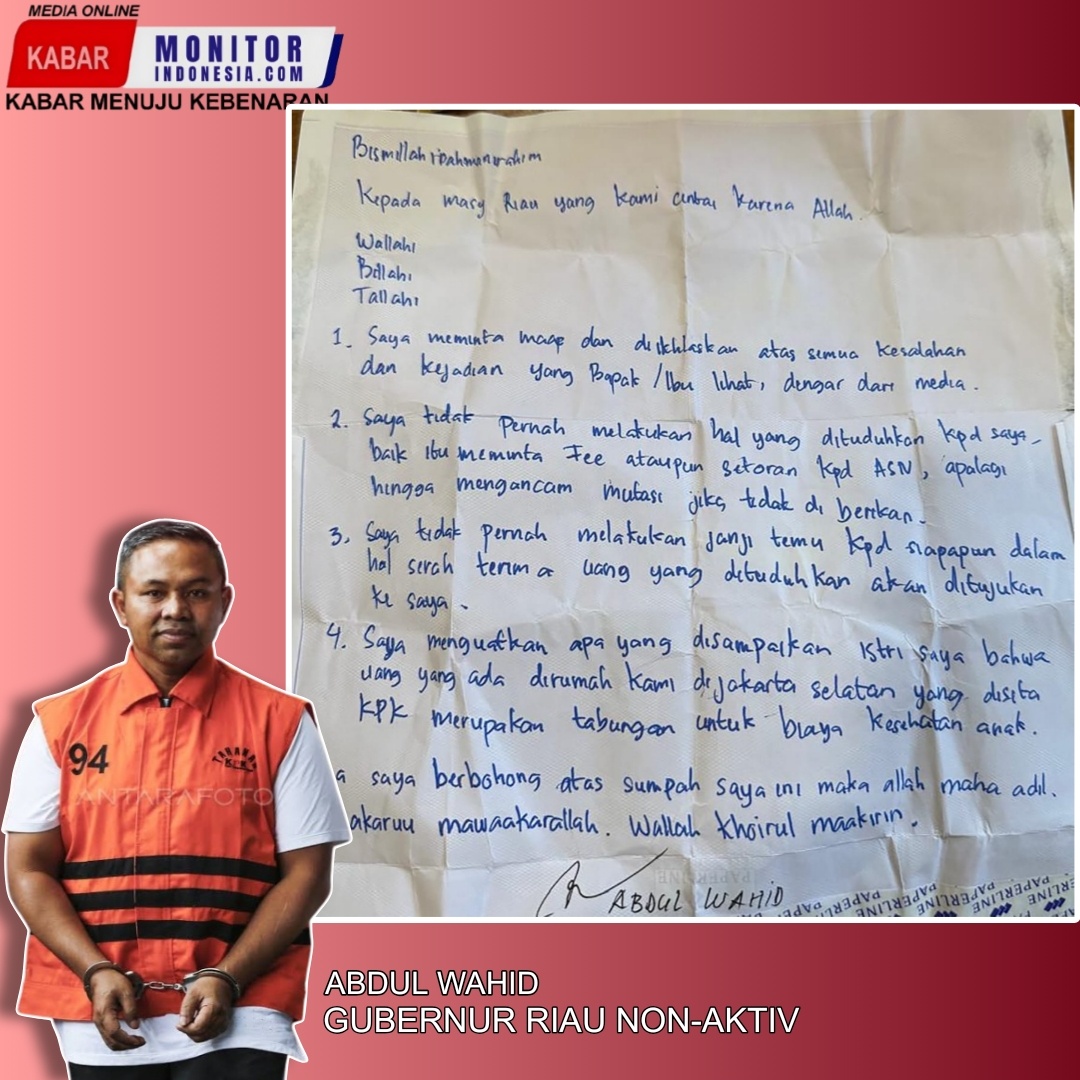 MEDIA ONLINE
KABAR
MONITOR
INDONESIA.COM
KABAR MENUJU KEBENARAN
Bismillahirrahmanirrahim
Kepada masy Riau yang kami cintai karena Allah.
Wallahi
Billahi
Tallahi
1. Saya meminta maap dan diikhlaskan atas semua kesalahan
dan kejadian yang Bapak/Ibu lihat, dengar dari media.
2. Saya tidak pernah melakukan hal yang dituduhkan kpd saya,
baik itu meminta Fee ataupun setoran kpd ASN, apalagi
hingga mengancam mutasi jika tidak di berikan.
3. Saya tidak pernah melakukan janji temu kpd siapapun dalam
hal serah terima uang yang dituduhkan akan ditujukan
ke saya.
4. Saya menguatkan apa yang disampaikan istri saya bahwa
uang yang ada dirumah kami dijakarta selatan yang disita
KPK merupakan tabungan untuk biaya kesehatan anak.
a saya berbohong atas sumpah saya ini maka allah maha adil.
akaruu mawaakarallah. Wallah khoirul maakirin.
ABDUL WAHID
PAPERLINE PAPERLINE PAPERLINE PAPERLINE
94
TAHANAN
KPK
ANTARAFOTO
ABDUL WAHID
GUBERNUR RIAU NON-AKTIV